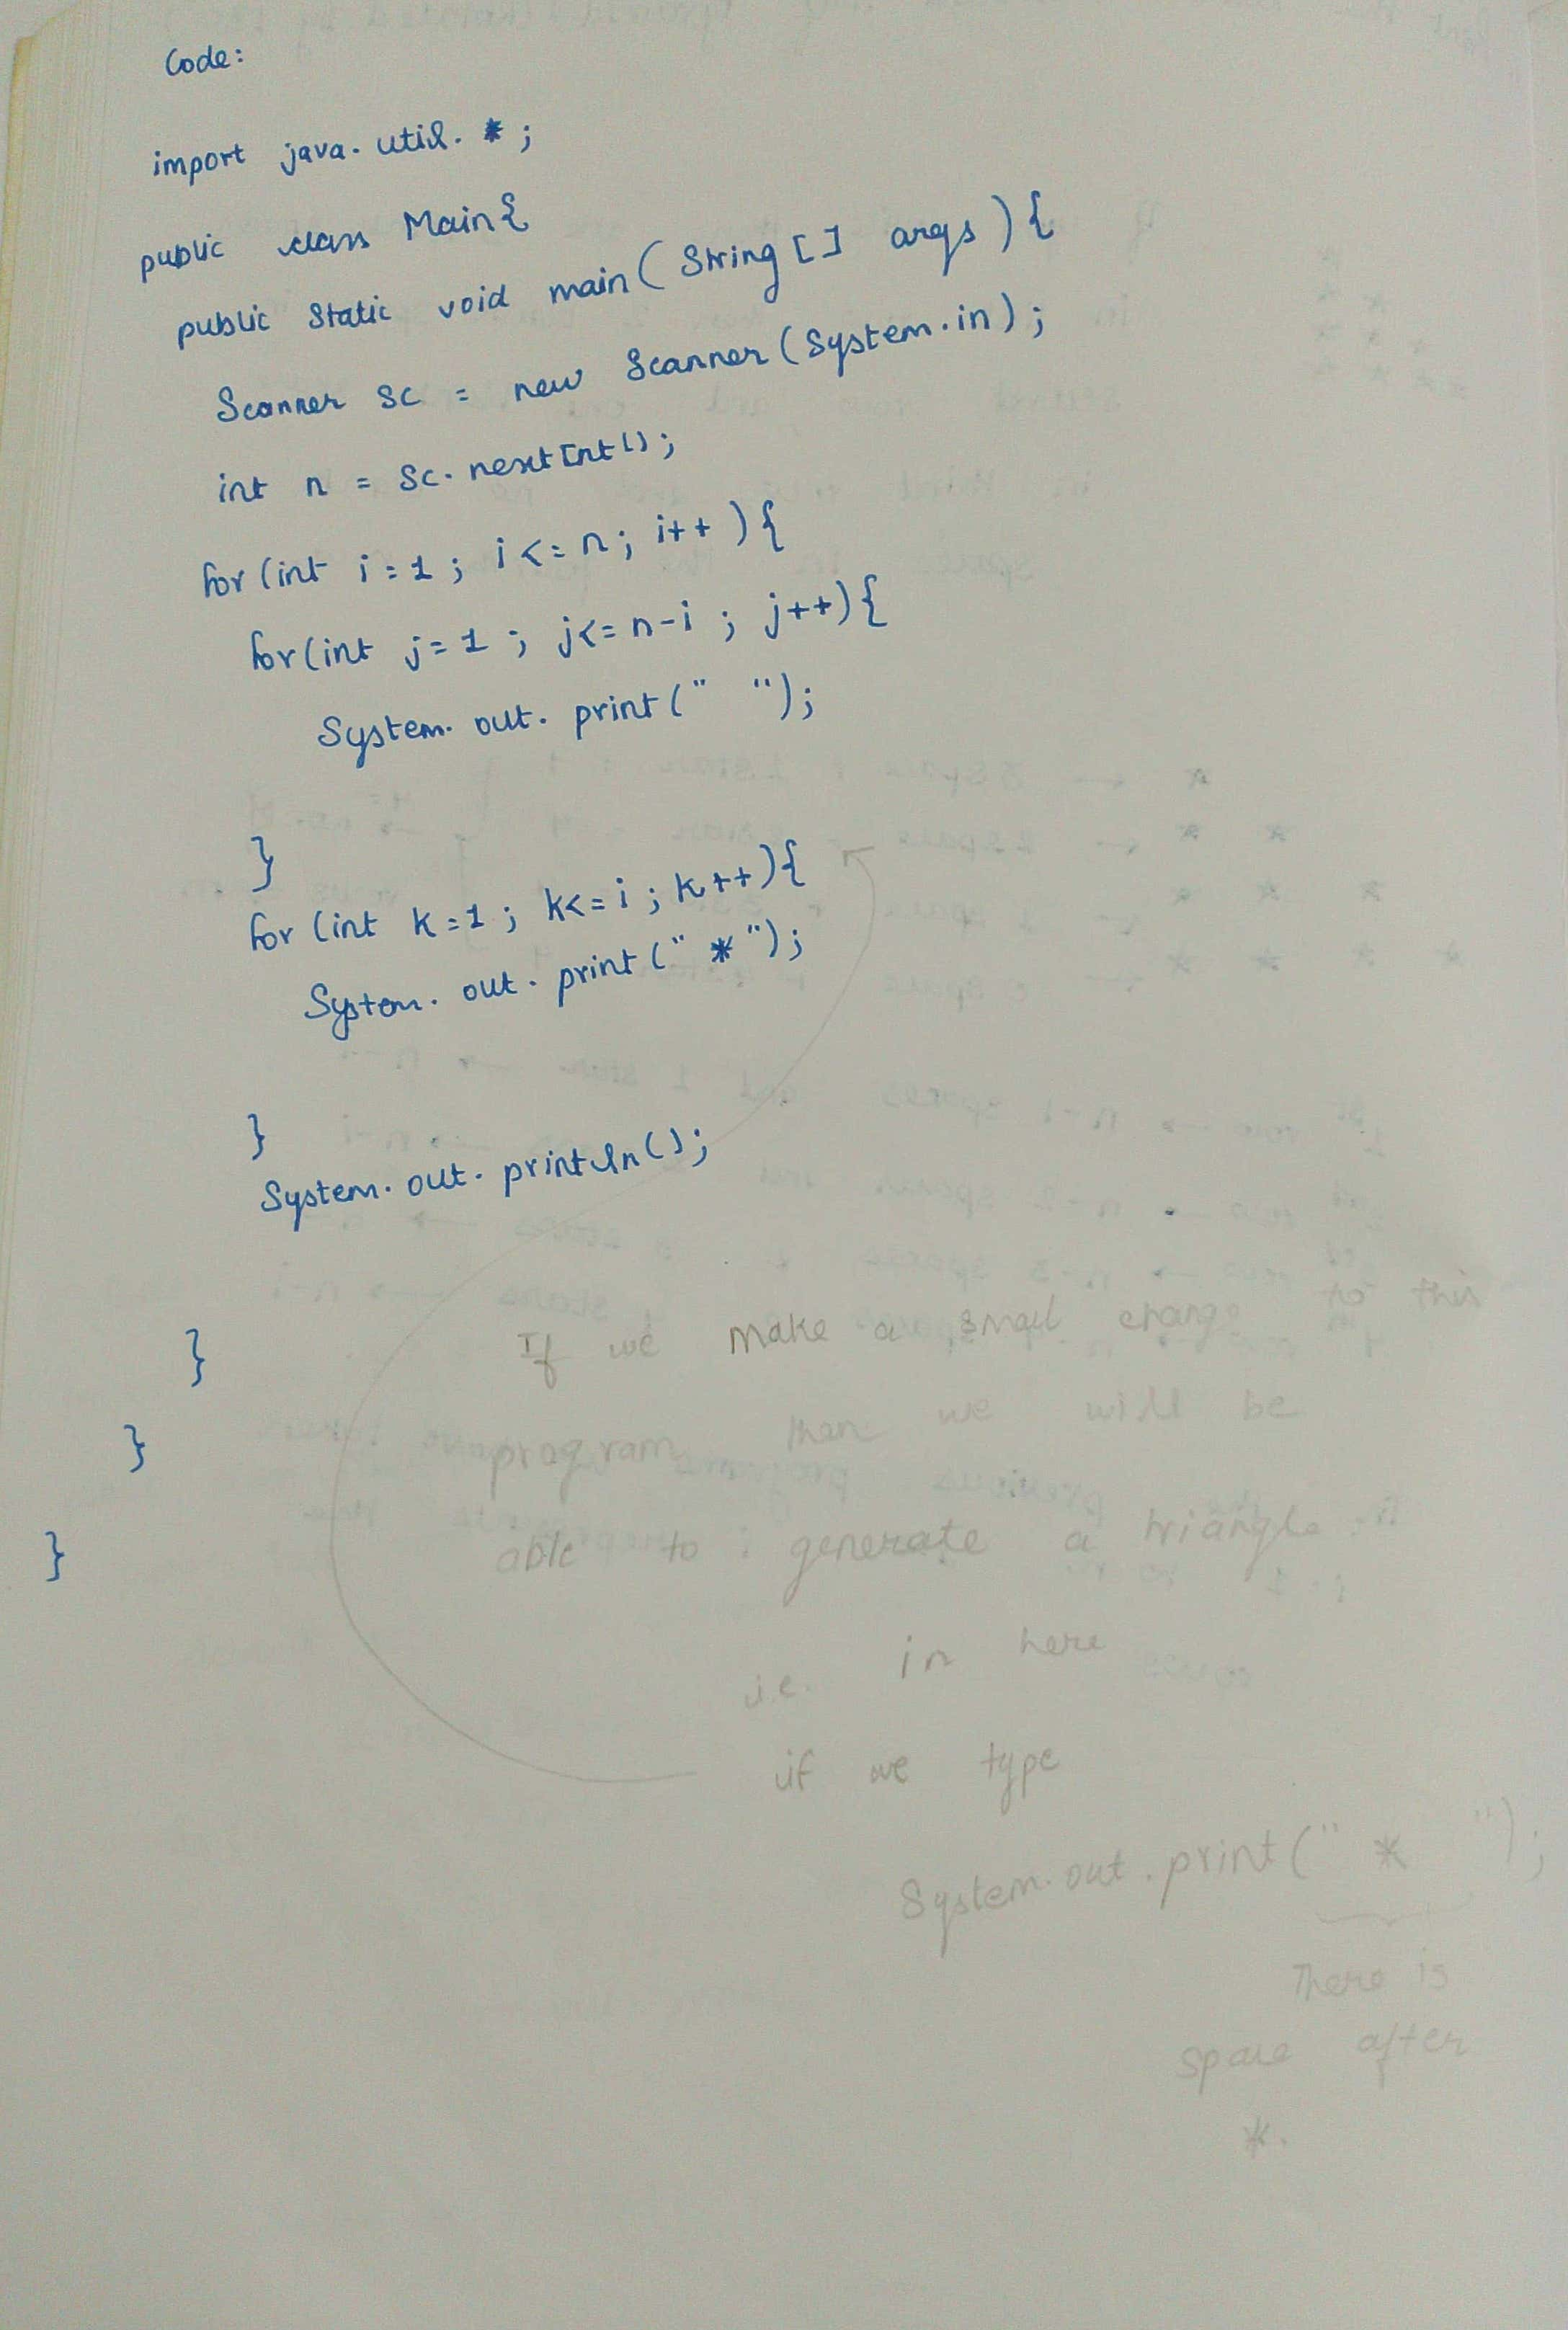 Code:
import java.util.*;
public class Main{
public static void main(String[] args){
Scanner sc = new Scanner(System.in);
int n = sc.nextInt();
for(int i=1; i<=n; i++){
for(int j=1; j<=n-i; j++){
System.out.print(" ");
}
for(int k=1; k<=i; k++){
System.out.print("*");
}
System.out.println();
}
}
}
If we make a small change to this
program then we will be
able to generate a triangle
i.e. in here
if we type
System.out.print("* ");
There is
space after
*.